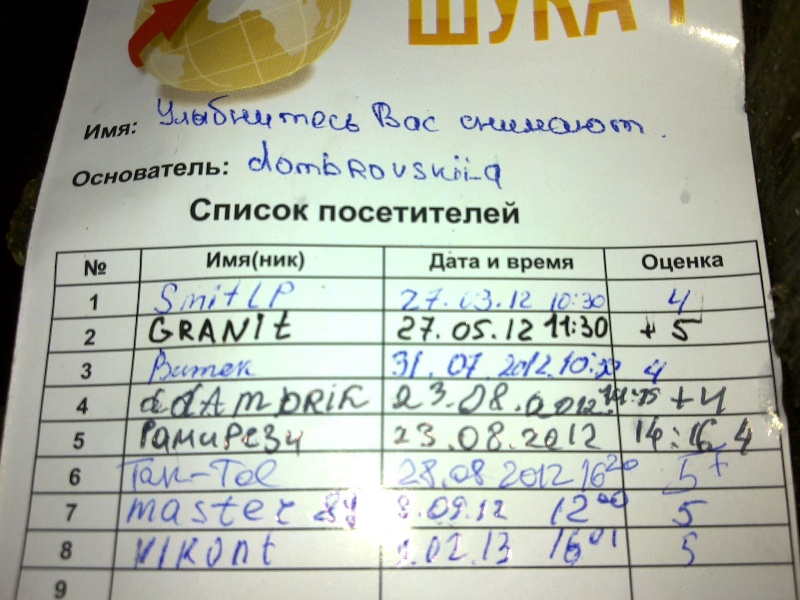 ШУКА
Имя: Улыбнитесь Вас снимают.
Основатель: dombrovskii-a
Список посетителей
№ Имя(ник) Дата и время Оценка
1 SmitLP 27.03.12 10:30 4
2 GRANIt 27.05.12 11:30 +5
3 Витек 31.07.2012. 4
4 23.08.2012. +4
5 23.08.2012 14:16 4
6 28.08 2012 16 20 5+
7 master .09.12 12 00 5
8 VIKONt .02.13 16 01 5
9